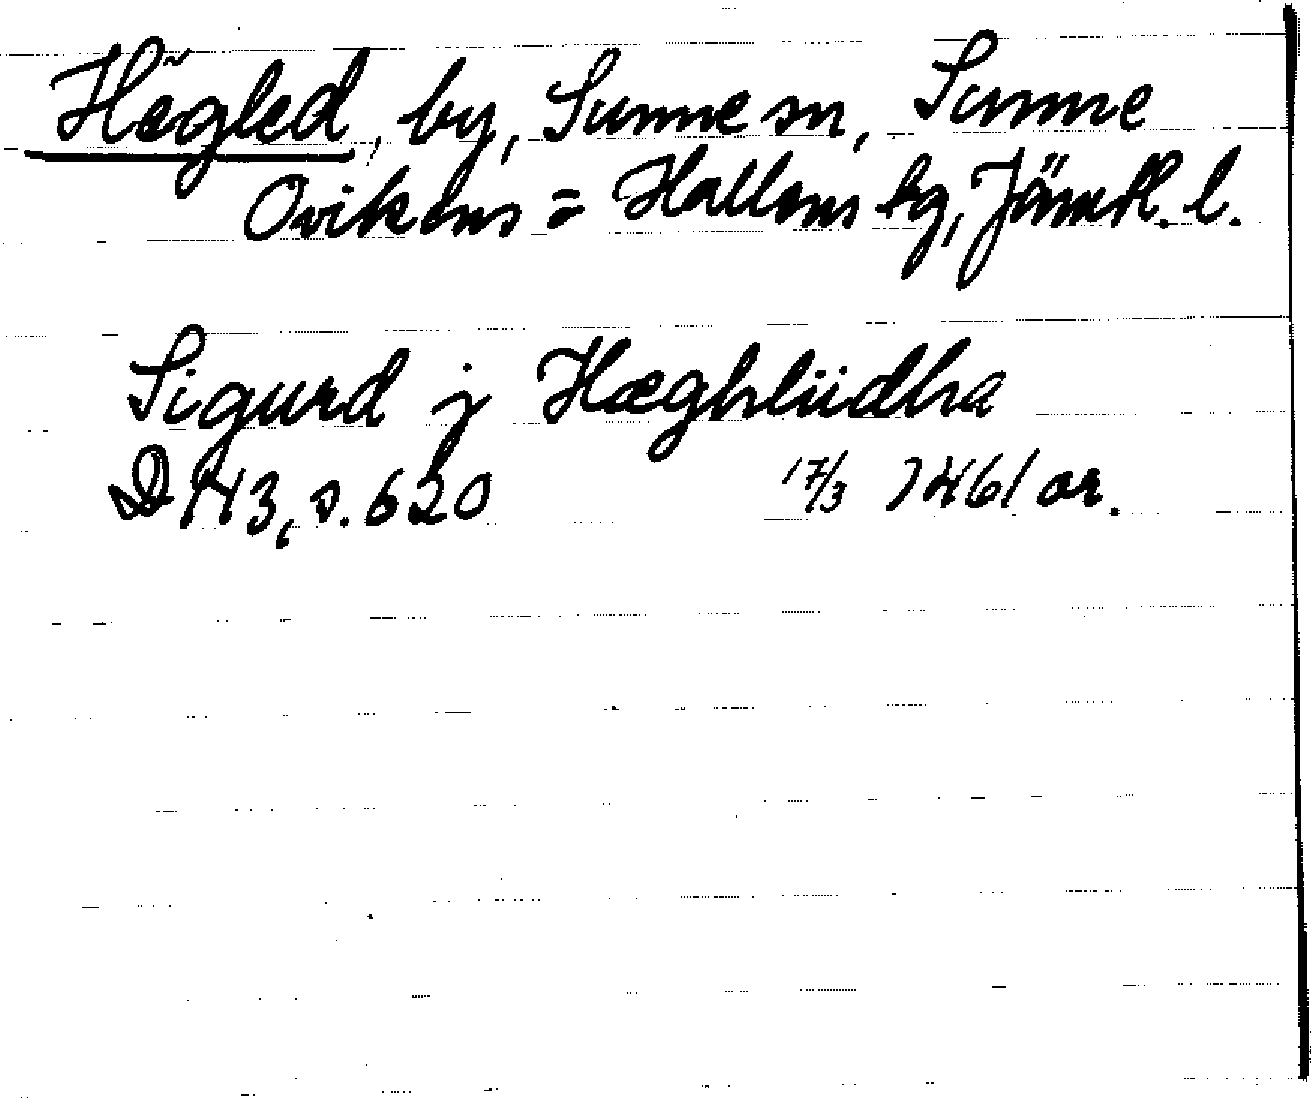 Hägled, by, Sunne sn, Sunne
Ovikens = Hallens tg, Jämtl. l.
Sigurd j Hæghliidha
D 143, s. 620 17/3 1461 or.